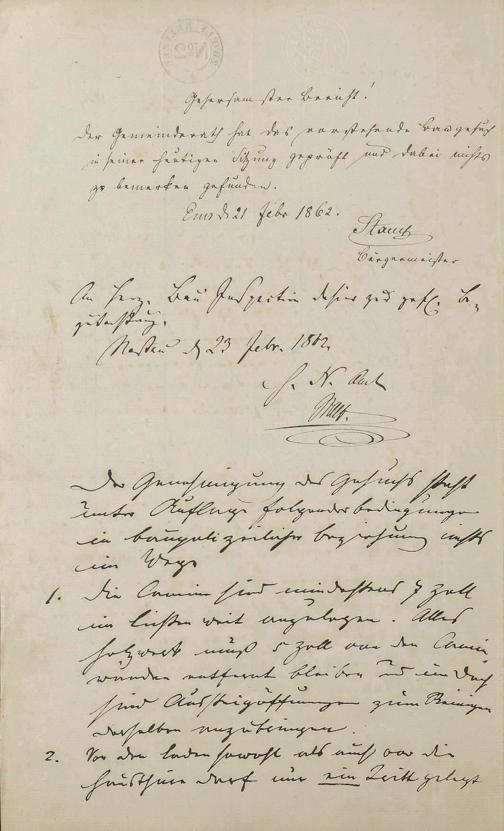 No 2
Gehorsamster Bericht!
Der Gemeinderath hat das vorstehende Baugesuch
in seiner heutigen Sitzung geprüft und dabei nichts
zu bemerken gefunden.
Ems d. 21 Febr 1862.
Bürgermeister
An Herz. Bau Inspection dahier zur gefl. Be-
gutachtung.
Nassau d. 23 Febr. 1862
H. N. Amt
Der Genehmigung des Gesuchs steht
unter Auflage folgender Bedingungen
in baupolizeilicher Beziehung nichts
im Wege
1. Die Camine sind mindestens 7 Zoll
im Lichten weit anzulegen. Alles
Holzwerk muß 5 Zoll von den Camin
wänden entfernt bleiben und im Dach
sind Aussteigöffnungen zum Reinigen
derselben anzubringen.
2. Vor den Laden sowohl als auch vor die
Hausthüre darf nur ein Tritt gelegt